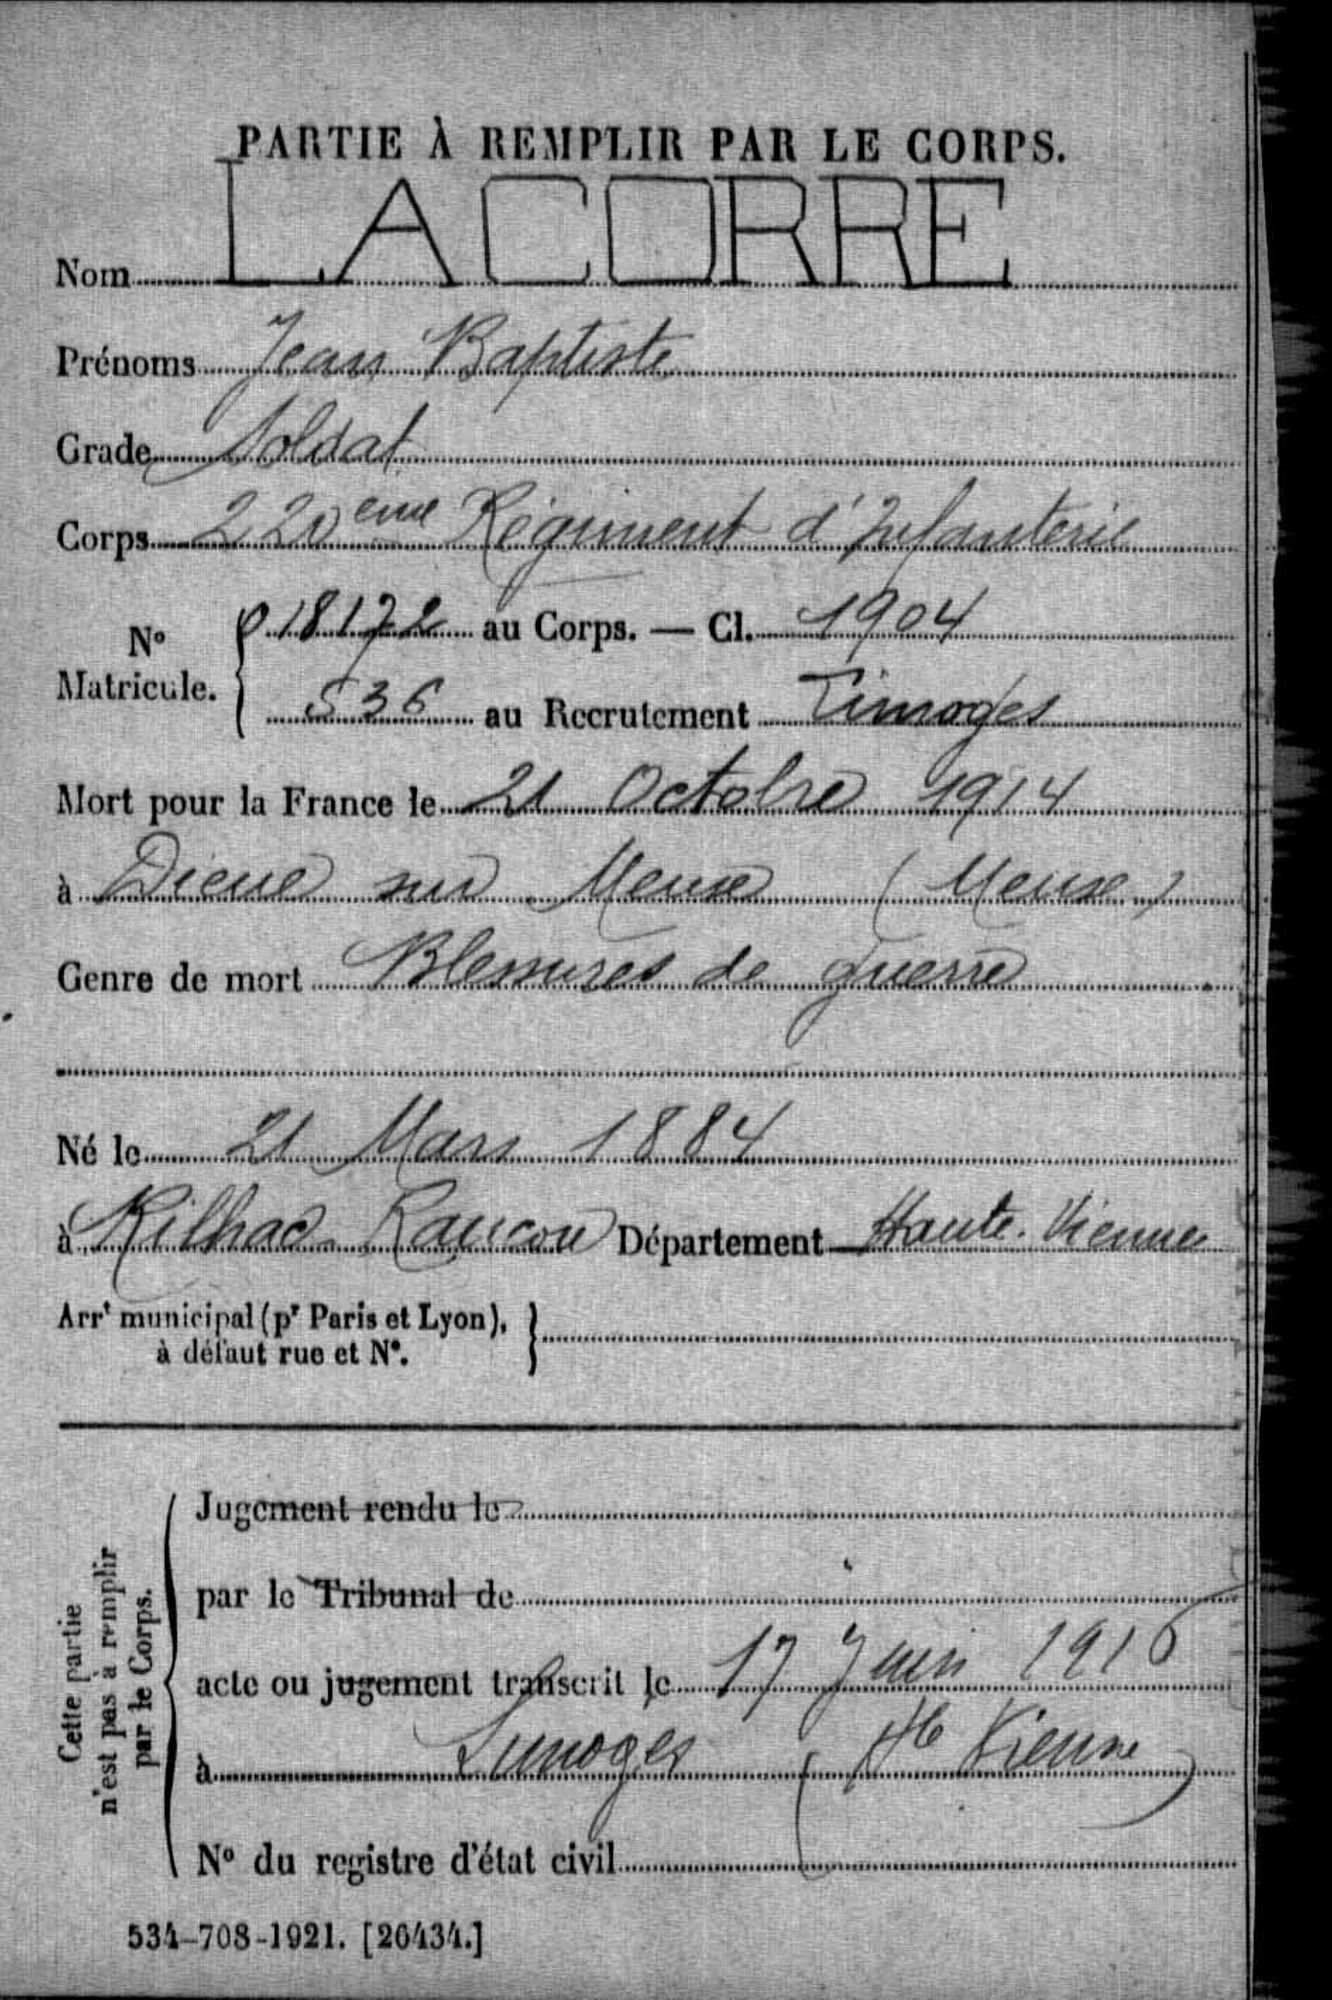 PARTIE À REMPLIR PAR LE CORPS.
Nom LACORRE
Prénoms Jean Baptiste
Grade Soldat
Corps 220ème Régiment d'Infanterie
No Matricule. { 018172 au Corps. — Cl. 1904
536 au Recrutement Limoges
Mort pour la France le 21 Octobre 1914
à Dieue sur Meuse (Meuse)
Genre de mort Blessures de guerre
Né le 21 Mars 1884
à Rilhac Rancon Département Haute-Vienne
Arrt municipal (pr Paris et Lyon), }
à défaut rue et No.
Cette partie n'est pas à remplir par le Corps.
Jugement rendu le
par le Tribunal de
acte ou jugement transcrit le 17 Juin 1916
à Limoges (Hte Vienne)
No du registre d'état civil
534-708-1921. [26434.]